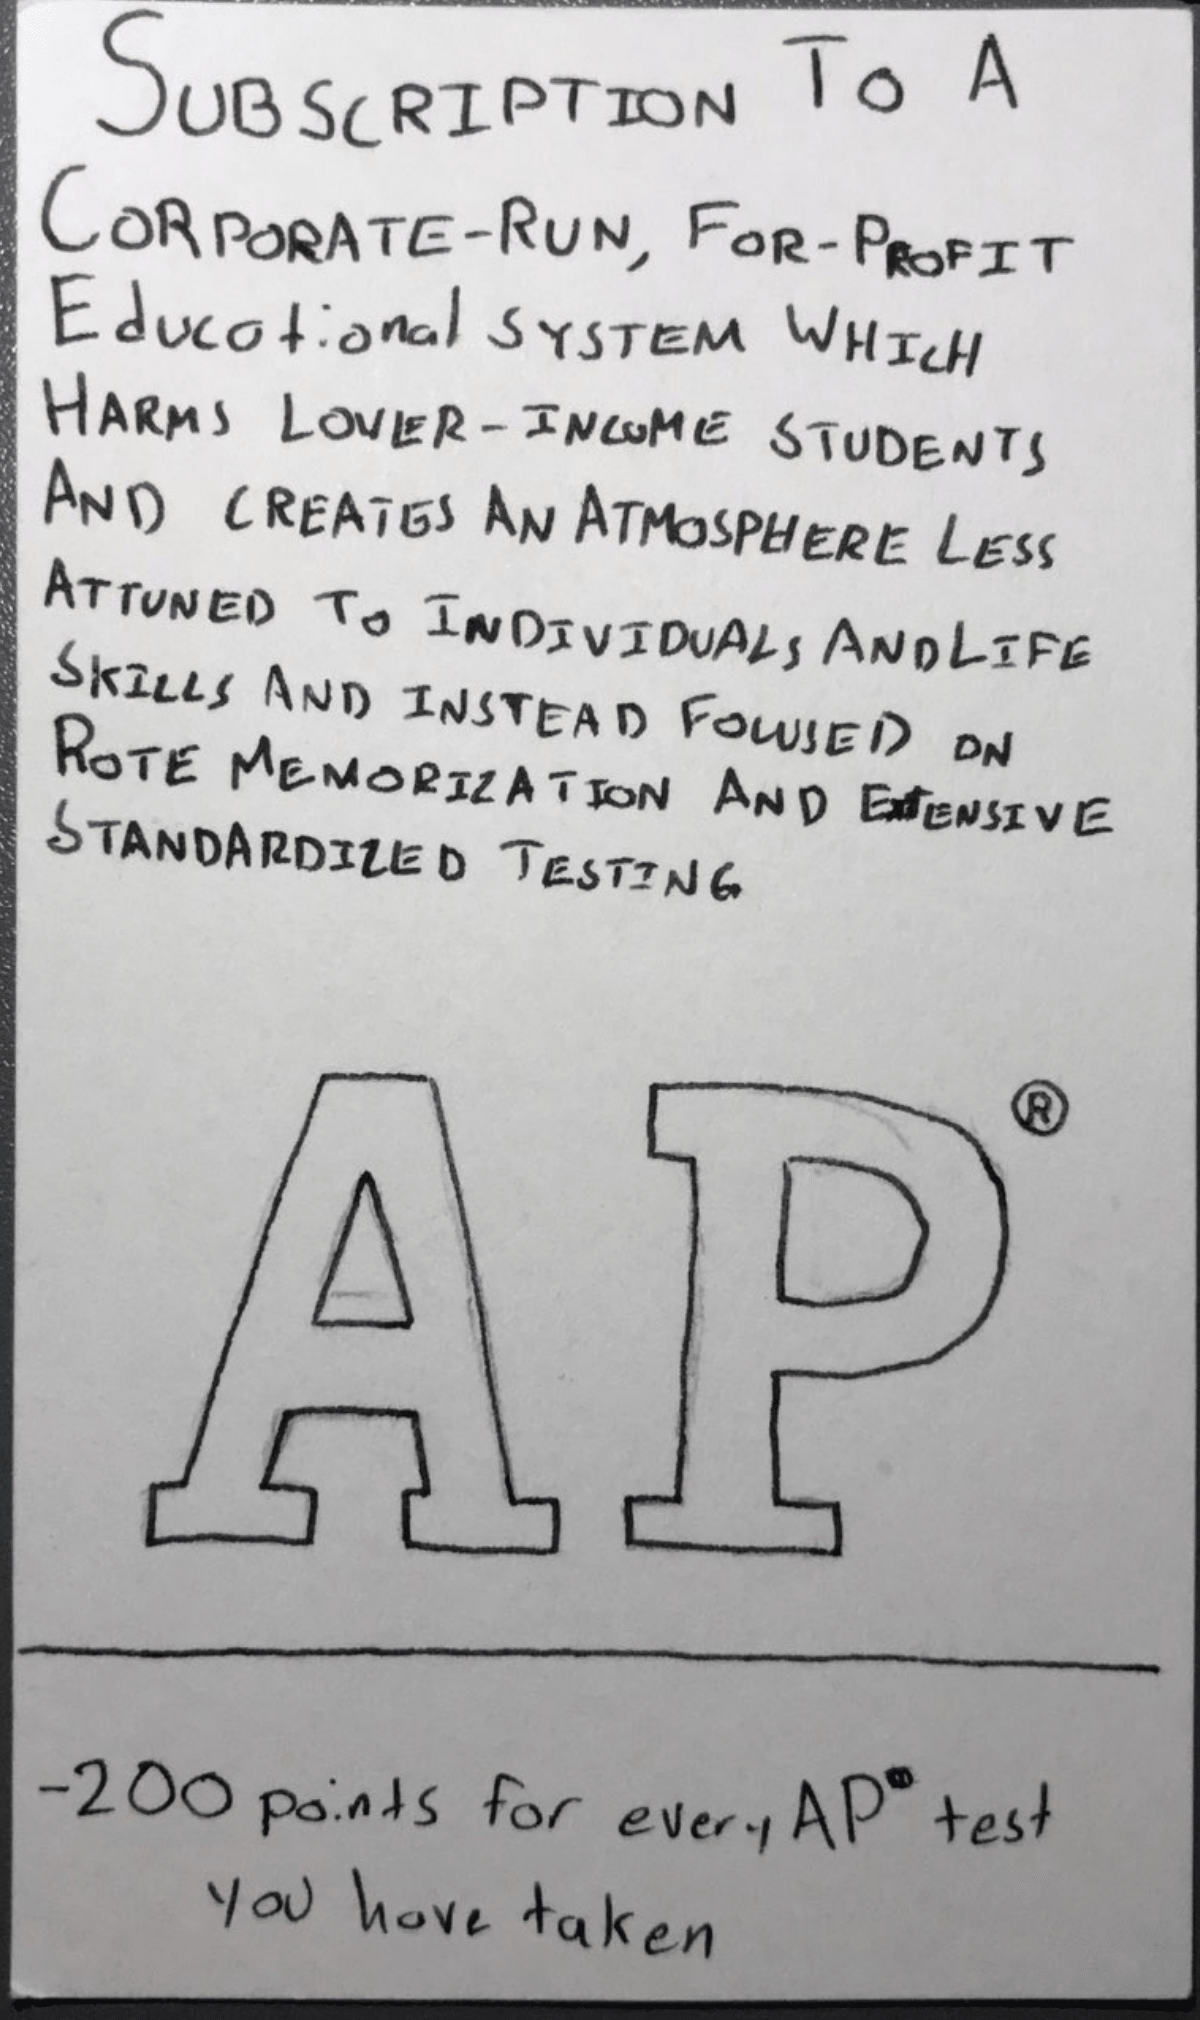 SUBSCRIPTION TO A
CORPORATE-RUN, FOR-PROFIT
Educational SYSTEM WHICH
HARMS LOWER-INCOME STUDENTS
AND CREATES AN ATMOSPHERE LESS
ATTUNED TO INDIVIDUALS AND LIFE
SKILLS AND INSTEAD FOCUSED ON
ROTE MEMORIZATION AND EXTENSIVE
STANDARDIZED TESTING
AP®
-200 points for every AP® test
you have taken